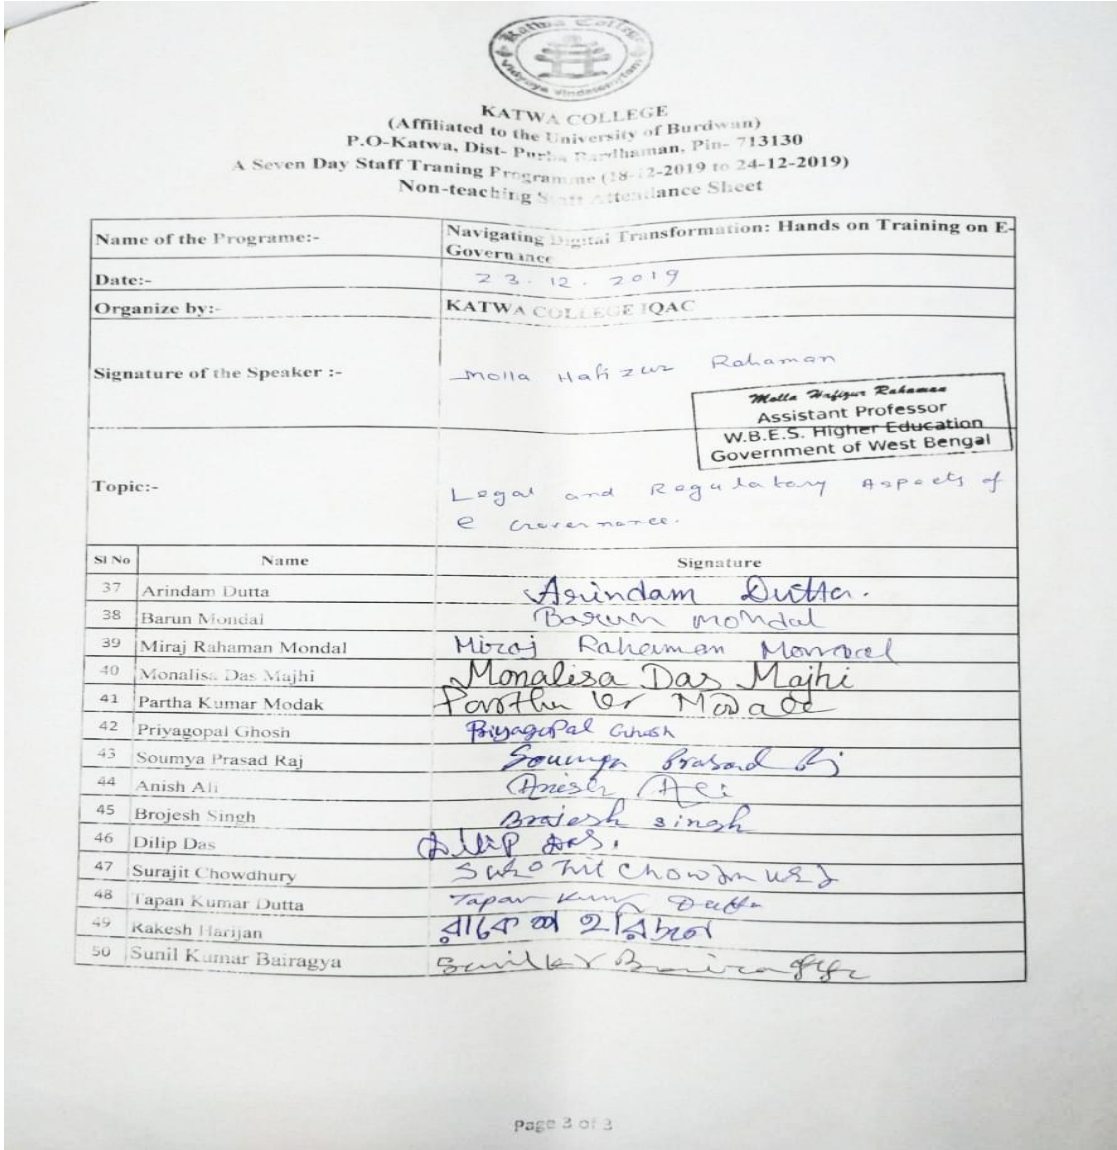 Katwa College
Vidyaya Vindateamritam
KATWA COLLEGE
(Affiliated to the University of Burdwan)
P.O-Katwa, Dist- Purba Bardhaman, Pin- 713130
A Seven Day Staff Traning Programme (18-12-2019 to 24-12-2019)
Non-teaching Staff Attendance Sheet
Name of the Programe:- Navigating Digital Transformation: Hands on Training on E-
Governance
Date:- 23.12.2019
Organize by:- KATWA COLLEGE IQAC
Signature of the Speaker :- Molla Hafizur Rahaman
Molla Hafizur Rahaman
Assistant Professor
W.B.E.S. Higher Education
Government of West Bengal
Topic:- Legal and Regulatory Aspects of
e Governance.
Sl No Name Signature
37 Arindam Dutta Arindam Dutta.
38 Barun Mondal Barun Mondal
39 Miraj Rahaman Mondal Miraj Rahaman Mondal
40 Monalisa Das Majhi Monalisa Das Majhi
41 Partha Kumar Modak Partha Kr Modak
42 Priyagopal Ghosh Priyagopal Ghosh
43 Soumya Prasad Raj Soumya Prasad Raj
44 Anish Ali Anish Ali
45 Brojesh Singh Brajesh Singh
46 Dilip Das Dilip Das.
47 Surajit Chowdhury Chowdhury
48 Tapan Kumar Dutta Tapan Kumar Dutta
49 Rakesh Harijan রাকেশ হরিজন
50 Sunil Kumar Bairagya Sunil Kr Bairagya
Page 3 of 3